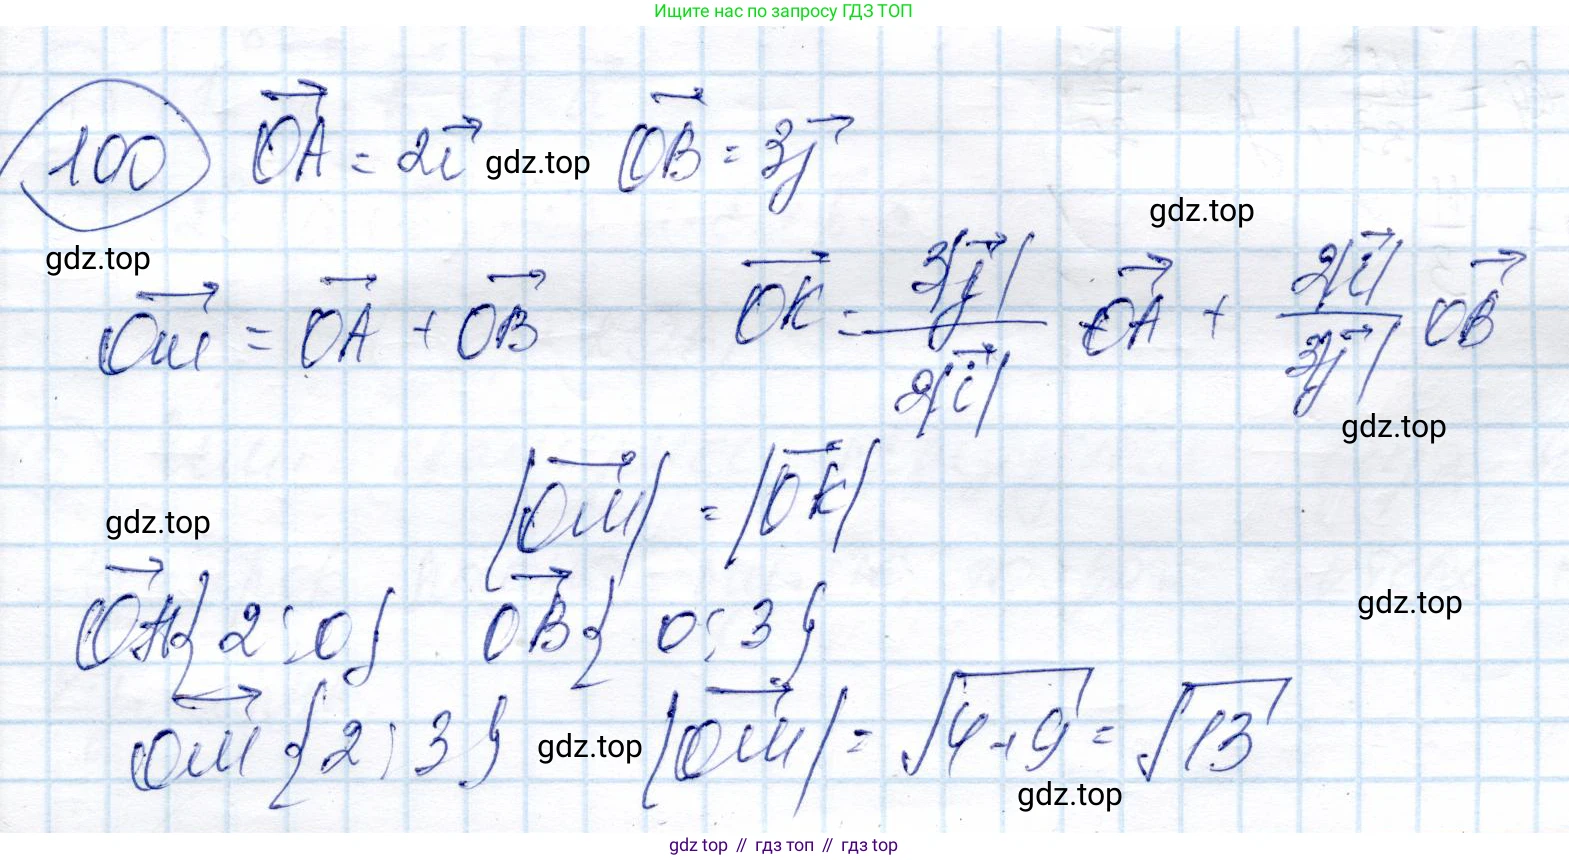 Ищите нас по запросу ГДЗ ТОП
100 OA = 2i gdz.top OB = 3j
gdz.top
gdz.top
OM = OA + OB OK = 3|j| / 2|i| · OA + 2|i| / 3|j| OB
gdz.top
|OM| = |OK|
gdz.top
OA{2; 0} OB{0; 3}
gdz.top
OM{2; 3} gdz.top |OM| = √4+9 = √13
gdz.top
gdz top // гдз топ // gdz.top